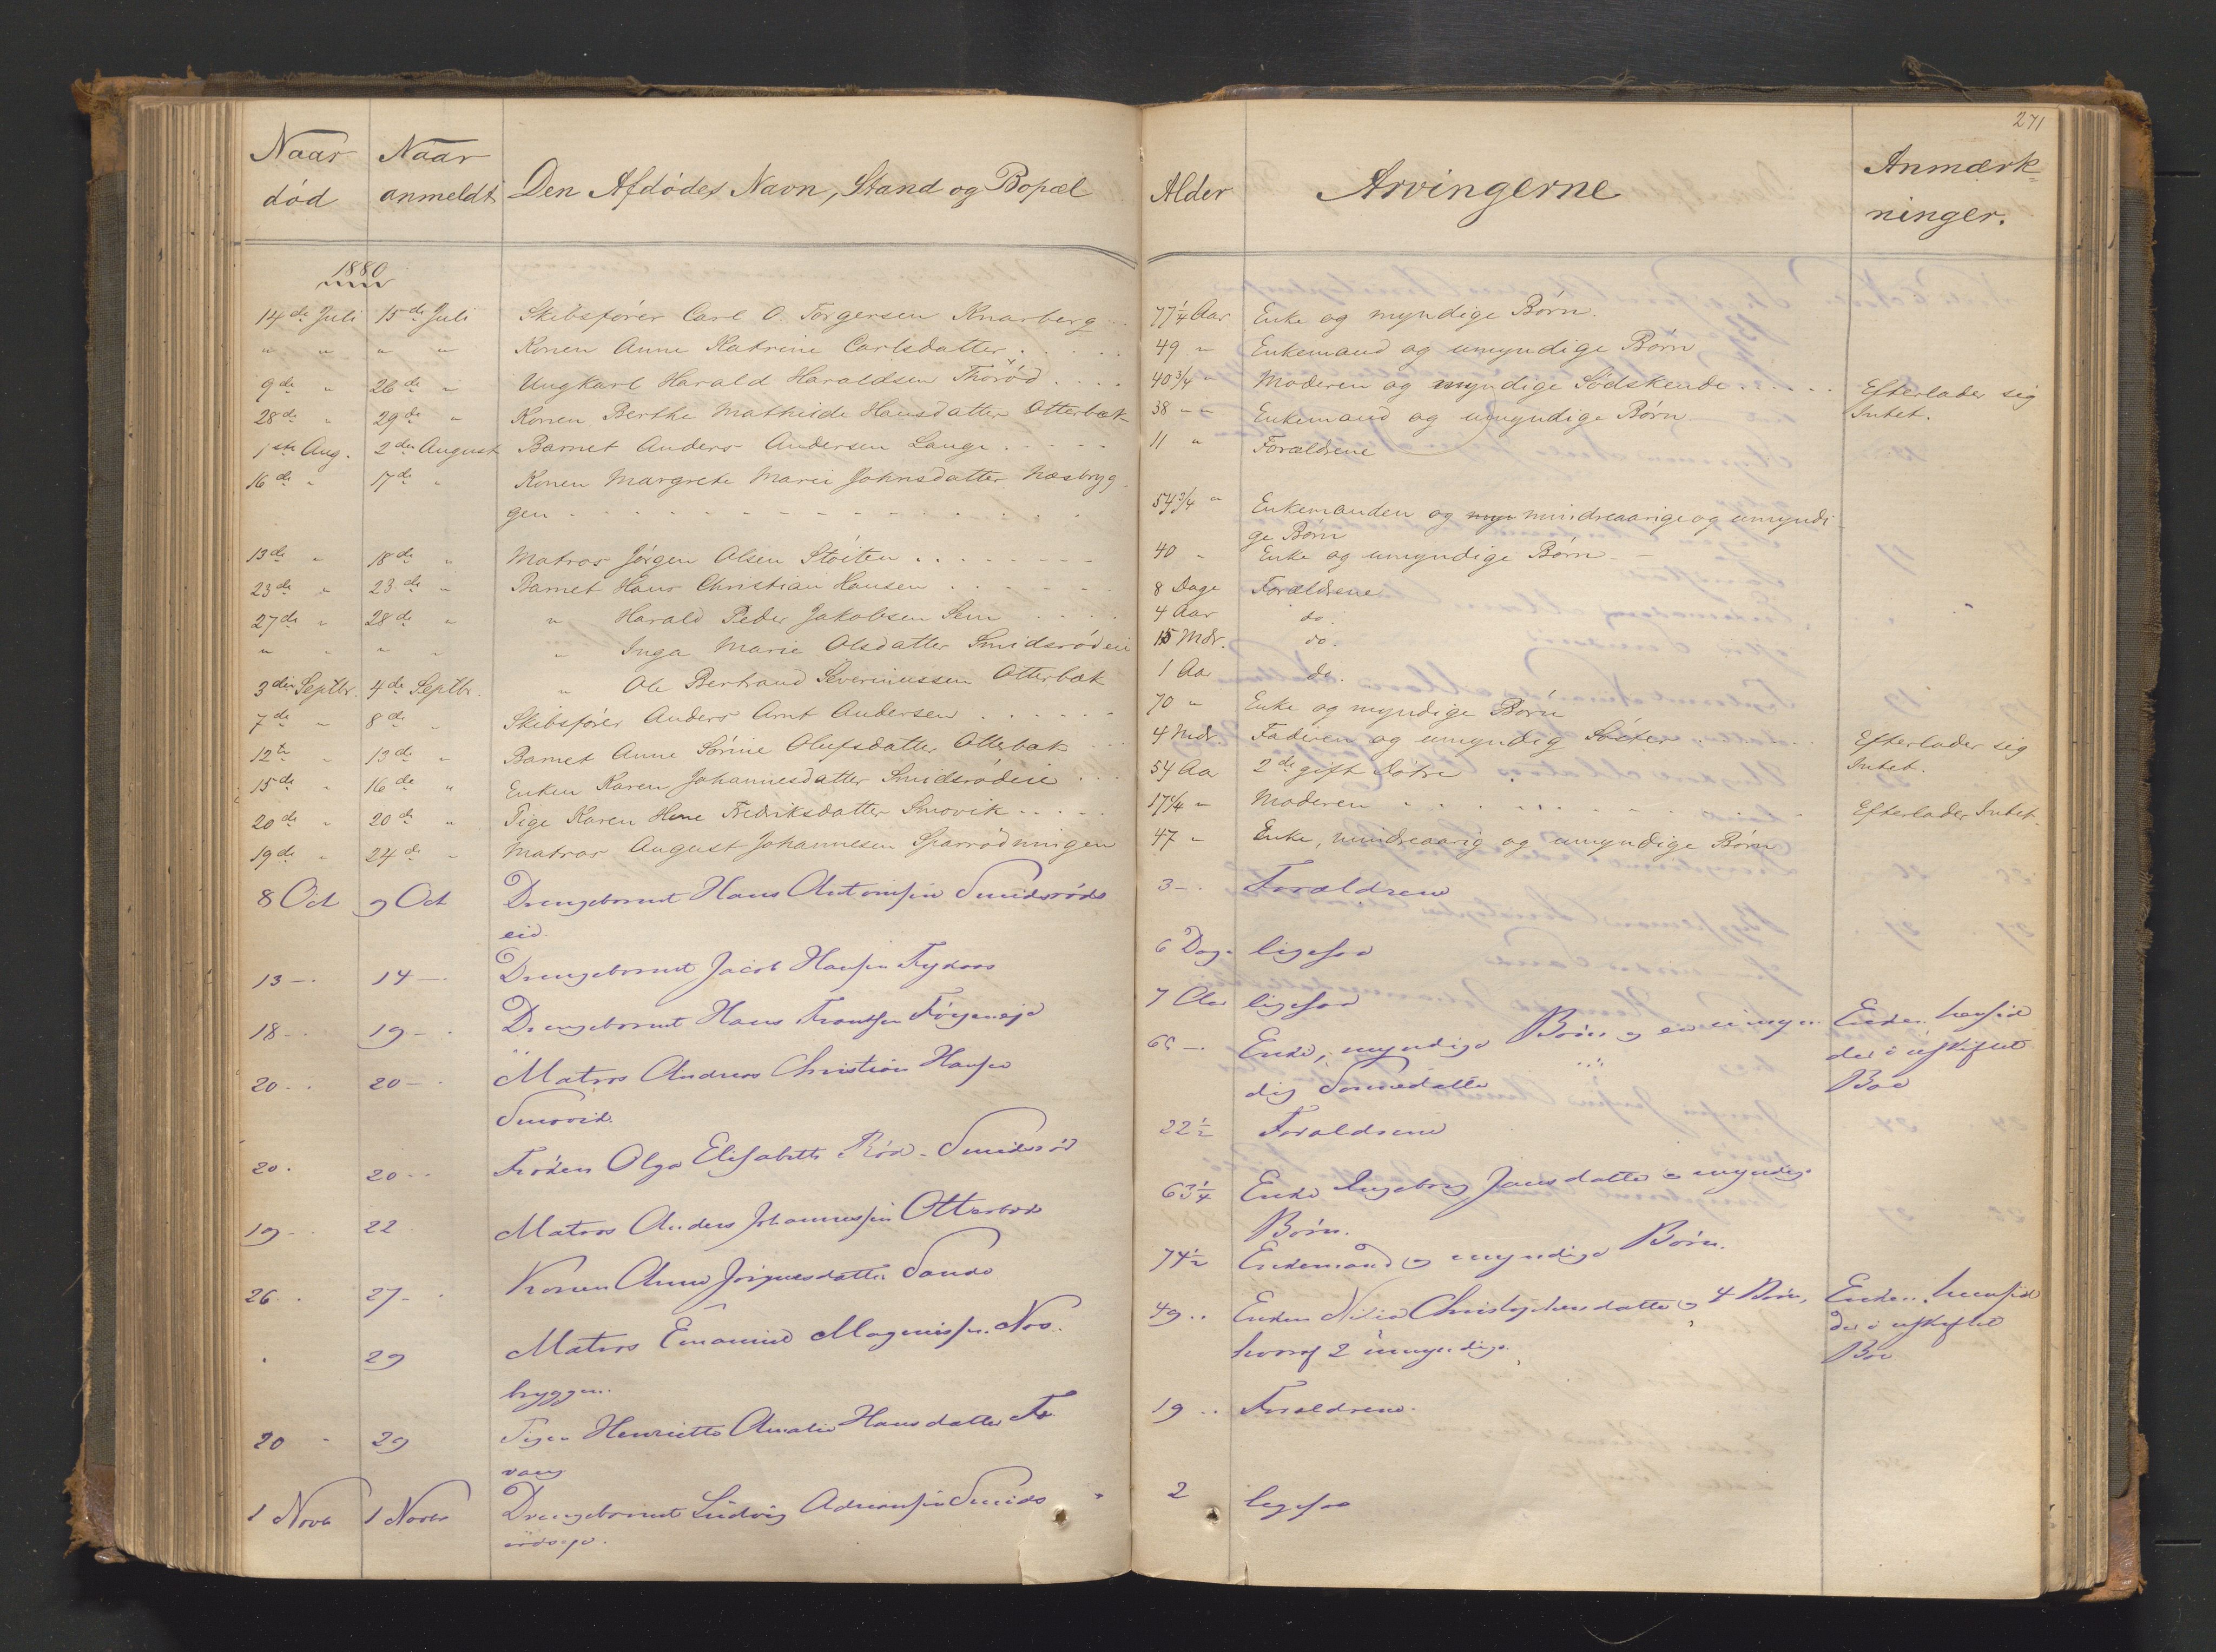 271
Naar død
Naar anmeldt
Den Afdødes Navn, Stand og Bopæl
Alder
Arvingerne
Anmærk-
ninger.
1880
14de Juli 15de Juli Skibsfører Carl O. Torgersen Knarberg 77 1/4 Aar Enke og myndige Børn.
" " " " Konen Anne Katrine Carlsdatter 49 " Enkemand og umyndige Børn
9de " 26de " Ungkarl Harald Haraldsen Thorød 40 3/4 " Moderen og myndige Sødskende Efterlader sig Intet.
28de " 29de " Konen Berthe Mathilde Hansdatter Otterbæk 38 " Enkemand og umyndige Børn.
1ste Aug. 2den August Barnet Anders Andersen Lauge 11 " Forældrene
16de " 17de " Konen Margrete Marie Johnsdatter Næsbryg-
gen 54 3/4 " Enkemanden og myn mindreaarige og umyndi-
ge Børn
13de " 18de " Matros Jørgen Olsen Støiten 40 " Enke og umyndige Børn
23de " 23de " Barnet Hans Christian Hansen 8 Dage Forældrene
27de " 28de " " Harald Peder Jakobsen Sem 4 Aar do.
" " " " " Inga Marie Olsdatter Smidsrødeie 15 Mdr. do.
3die Septbr. 4de Septbr. " Ole Bertrand Severinussen Otterbæk 1 Aar do.
7de " 8de " Skibsfører Anders Arnt Andersen 70 " Enke og myndige Børn
12te " 13de " Barnet Anne Sørine Olufsdatter Otterbæk 4 Mdr. Faderen og umyndig Søster Efterlader sig Intet.
15de " 16de " Enken Karen Johannesdatter Smidsrødeie 54 Aa 2de gift Døtre
20de " 20de " Pige Karen Fredriksdatter Smovik 17 " Moderen Efterlader Intet.
19de " 24de " Matros August Johannesen Sparrødningen 47 " Enke, mindreaarig og umyndige Børn
8 Oct 9 Oct Drengebarnet Hans Antonsen Smidsrøds
eid 3 Forældrene
13 14 Drengebarnet Jacob Hansen 6 Dage ligesaa
18 19 Drengebarnet Hans 7 Aar ligesaa
20 20 Matros Andreas Christian Hansen
Smovik Enke, myndige Børn og en umyn-
dig Sønnedatter Enken hensid-
der i uskiftet
Bo
20 20 Frøken Olga Elisabeth Rød Smidsrød 22 1/2 Forældrene
19 22 Matros Anders Johannessen Otterbæk 63 1/4 Enke Ingeborg Jansdatter og myndige
Børn.
26 27 Konen Anne Jørgensdatter Sande 74 1/2 Enkemand og myndige Børn.
" 29 Matros Emanuel Magnussen Næs-
bryggen. 49 Enken Christophersdatter og 4 Børn,
hvoraf 2 umyndige. Enken hensid-
der i uskiftet
Bo
20 29 Pigen Henriette Amalie Hansdatter
vang 19 Forældrene.
1 Novbr 1 Novbr Drengebarnet Ludvig Adriansen Smids-
2 ligesaa